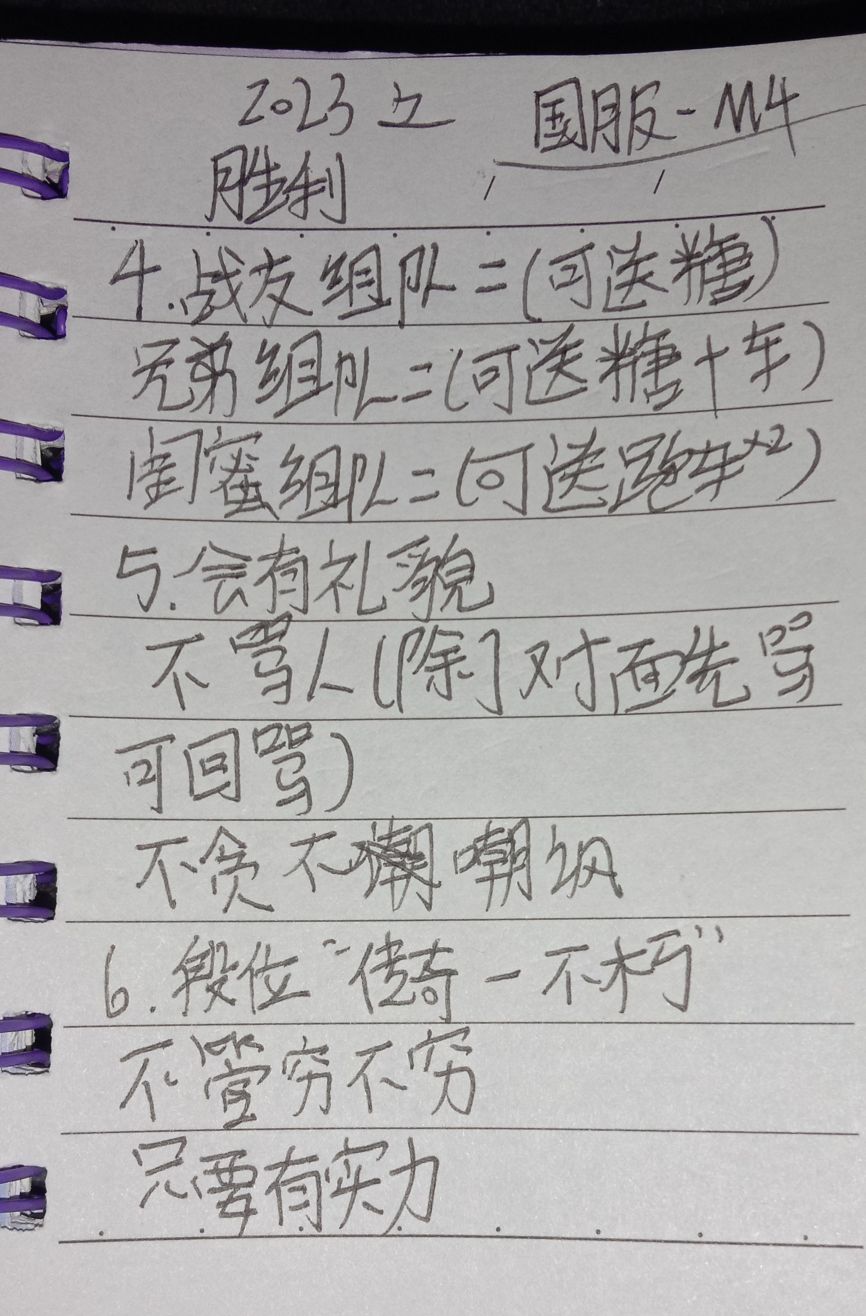 2023 立 国服-M4
胜利
4.战友组队=(可送糖)
兄弟组队=(可送糖+车)
闺蜜组队=(可送跑车×2)
5.会有礼貌
不骂人(除]对面先骂
可回骂)
不贪不嘲嘲讽
6.段位"传奇-不朽"
不管穷不穷
只要有实力